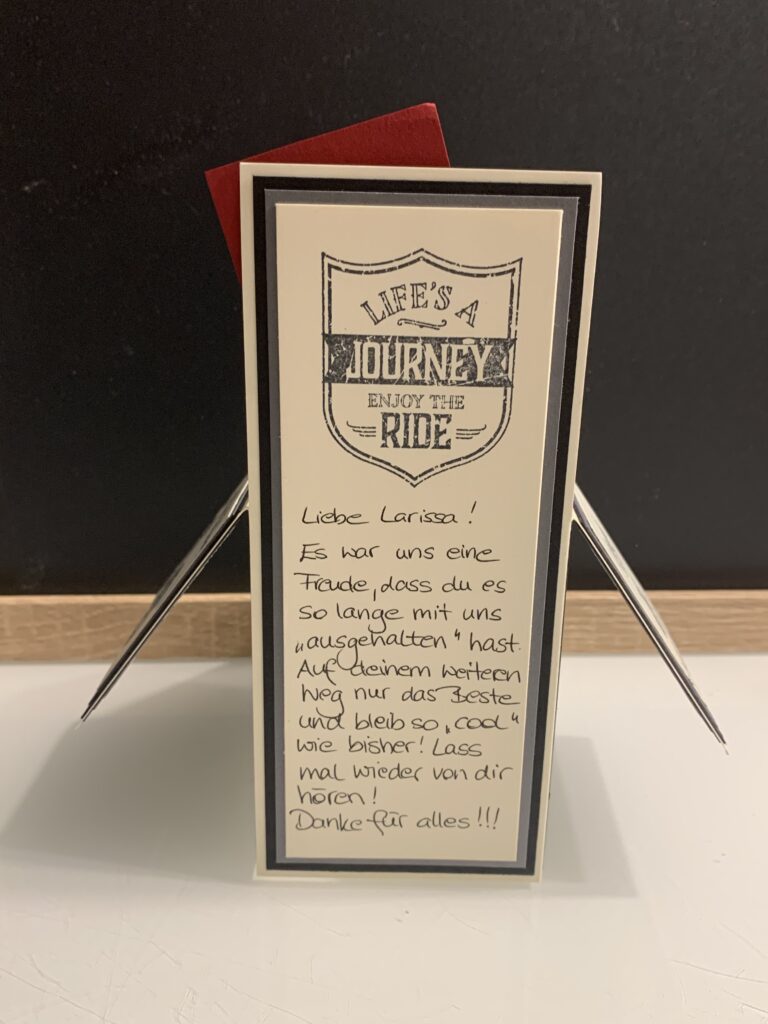 LIFE'S A
JOURNEY
ENJOY THE
RIDE
Liebe Larissa!
Es war uns eine
Freude, dass du es
so lange mit uns
„ausgehalten“ hast.
Auf deinem weiteren
Weg nur das Beste
und bleib so „cool“
wie bisher! Lass
mal wieder von dir
hören!
Danke für alles!!!